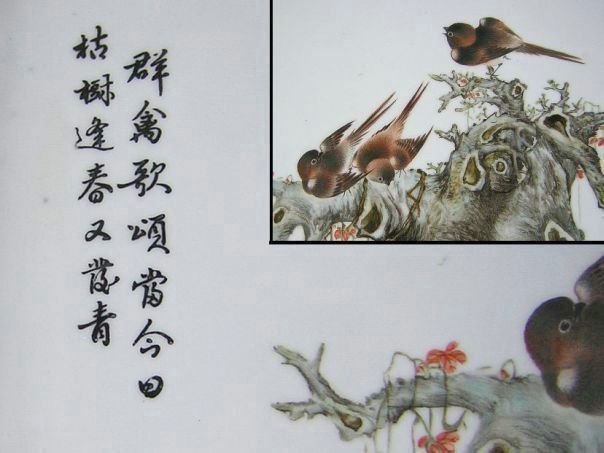 群禽歌頌當今日
枯樹逢春又發青